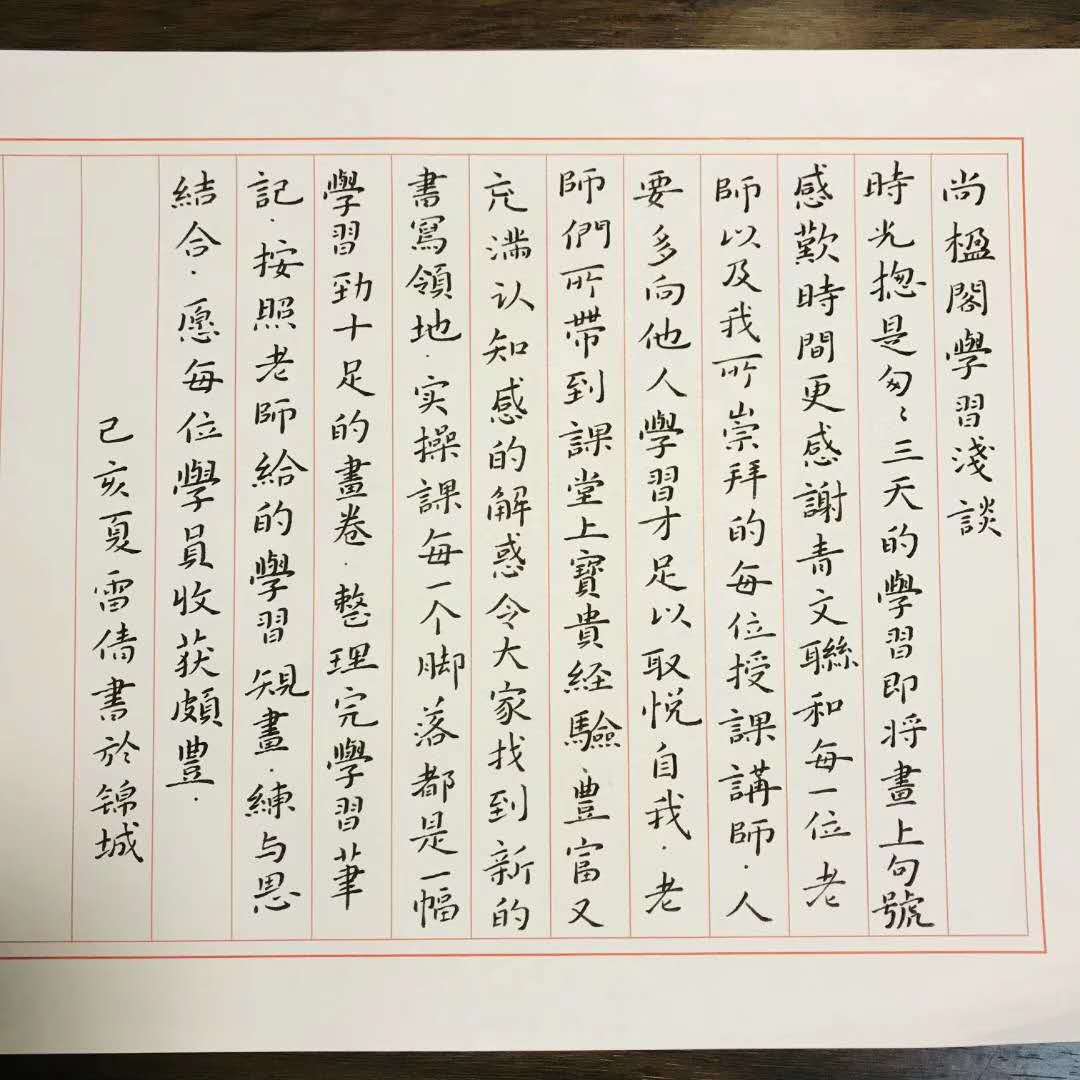 尚楹閣學習淺談
時光揔是匆〻三天的學習即将畫上句號
感歎時間更感謝青文聯和每一位老
師以及我所崇拜的每位授課講師.人
要多向他人學習才足以取悦自我.老
師們所帶到課堂上寶貴経驗.豊富又
充满认知感的解惑令大家找到新的
書寫領地.实操課每一个脚落都是一幅
學習勁十足的畫卷.整理完學習筆
記.按照老師給的學習規畫.練与思
結合.愿每位學員收获頗豊.
己亥夏雷儔書於锦城